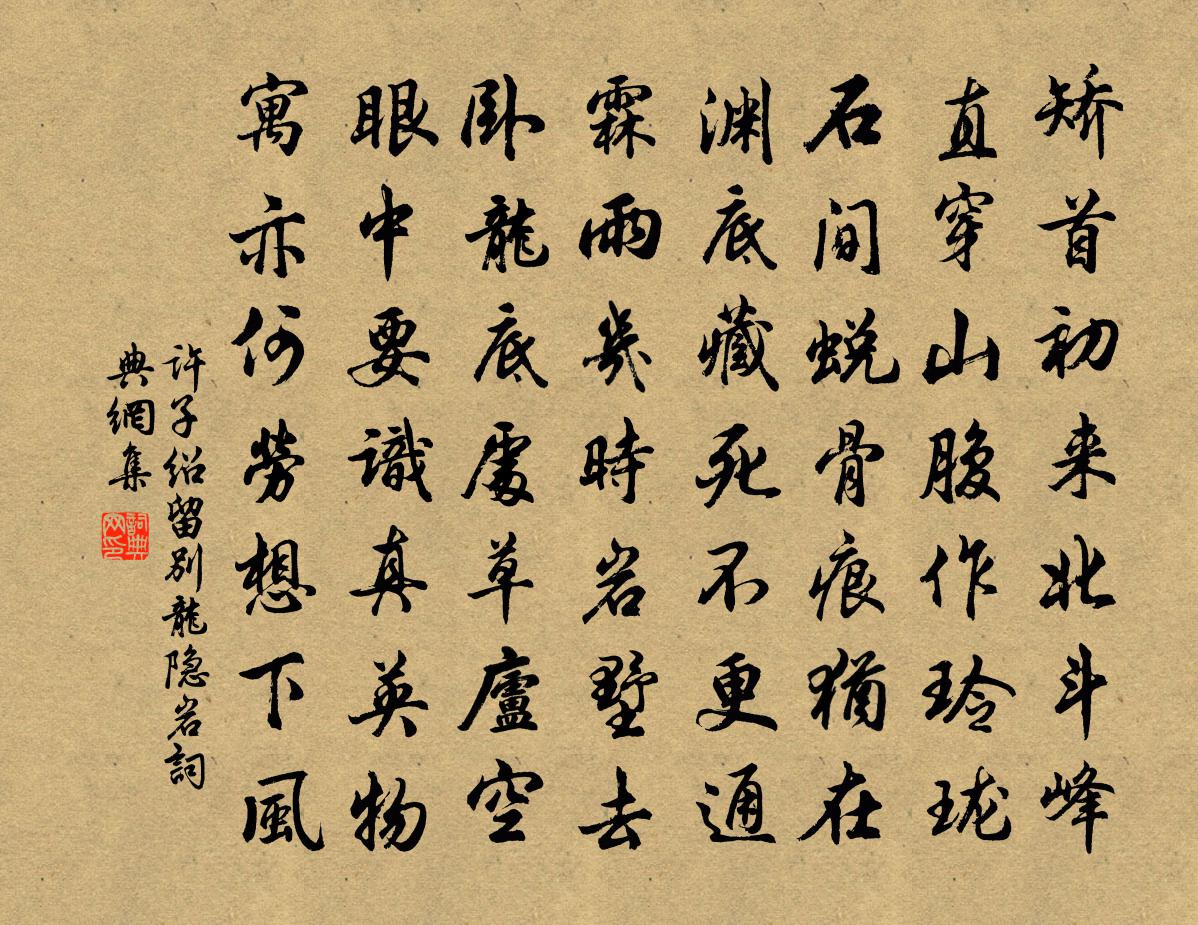 矫首初来北斗峰
直穿山腹作玲珑
石间蜕骨痕犹在
渊底藏死不更通
霖雨几时岩墅去
卧龍底處草廬空
眼中要識真英物
寓亦何勞想下風
许子绍留别龍隐岩詞
典網集
詞典網印